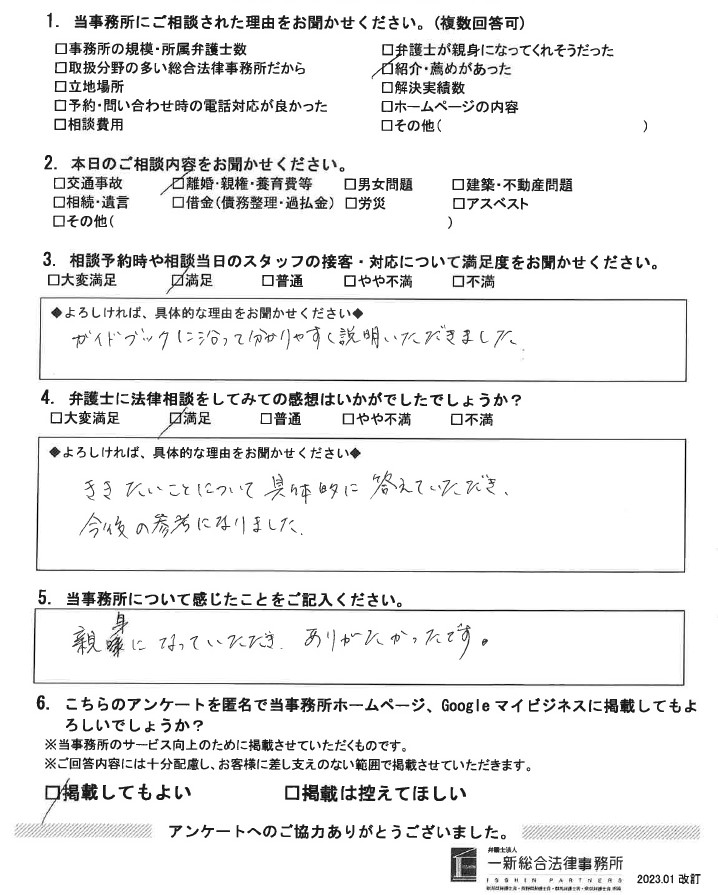 1. 当事務所にご相談された理由をお聞かせください。(複数回答可)
□事務所の規模・所属弁護士数 □弁護士が親身になってくれそうだった
□取扱分野の多い総合法律事務所だから □紹介・薦めがあった
□立地場所 □解決実績数
□予約・問い合わせ時の電話対応が良かった □ホームページの内容
□相談費用 □その他( )
2. 本日のご相談内容をお聞かせください。
□交通事故 □離婚・親権・養育費等 □男女問題 □建築・不動産問題
□相続・遺言 □借金(債務整理・過払金) □労災 □アスベスト
□その他( )
3. 相談予約時や相談当日のスタッフの接客・対応について満足度をお聞かせください。
□大変満足 □満足 □普通 □やや不満 □不満
◆よろしければ、具体的な理由をお聞かせください◆
ガイドブックに沿って分かりやすく説明いただきました.
4. 弁護士に法律相談をしてみての感想はいかがでしたでしょうか?
□大変満足 □満足 □普通 □やや不満 □不満
◆よろしければ、具体的な理由をお聞かせください◆
ききたいことについて具体的に答えていただき、
今後の参考になりました.
5. 当事務所について感じたことをご記入ください。
親身になっていただき.ありがたかったです。
6. こちらのアンケートを匿名で当事務所ホームページ、Googleマイビジネスに掲載してもよ
ろしいでしょうか?
※当事務所のサービス向上のために掲載させていただくものです。
※ご回答内容には十分配慮し、お客様に差し支えのない範囲で掲載させていただきます。
□掲載してもよい □掲載は控えてほしい
アンケートへのご協力ありがとうございました。
弁護士法人
一新総合法律事務所
ISSHIN PARTNERS
2023.01 改訂